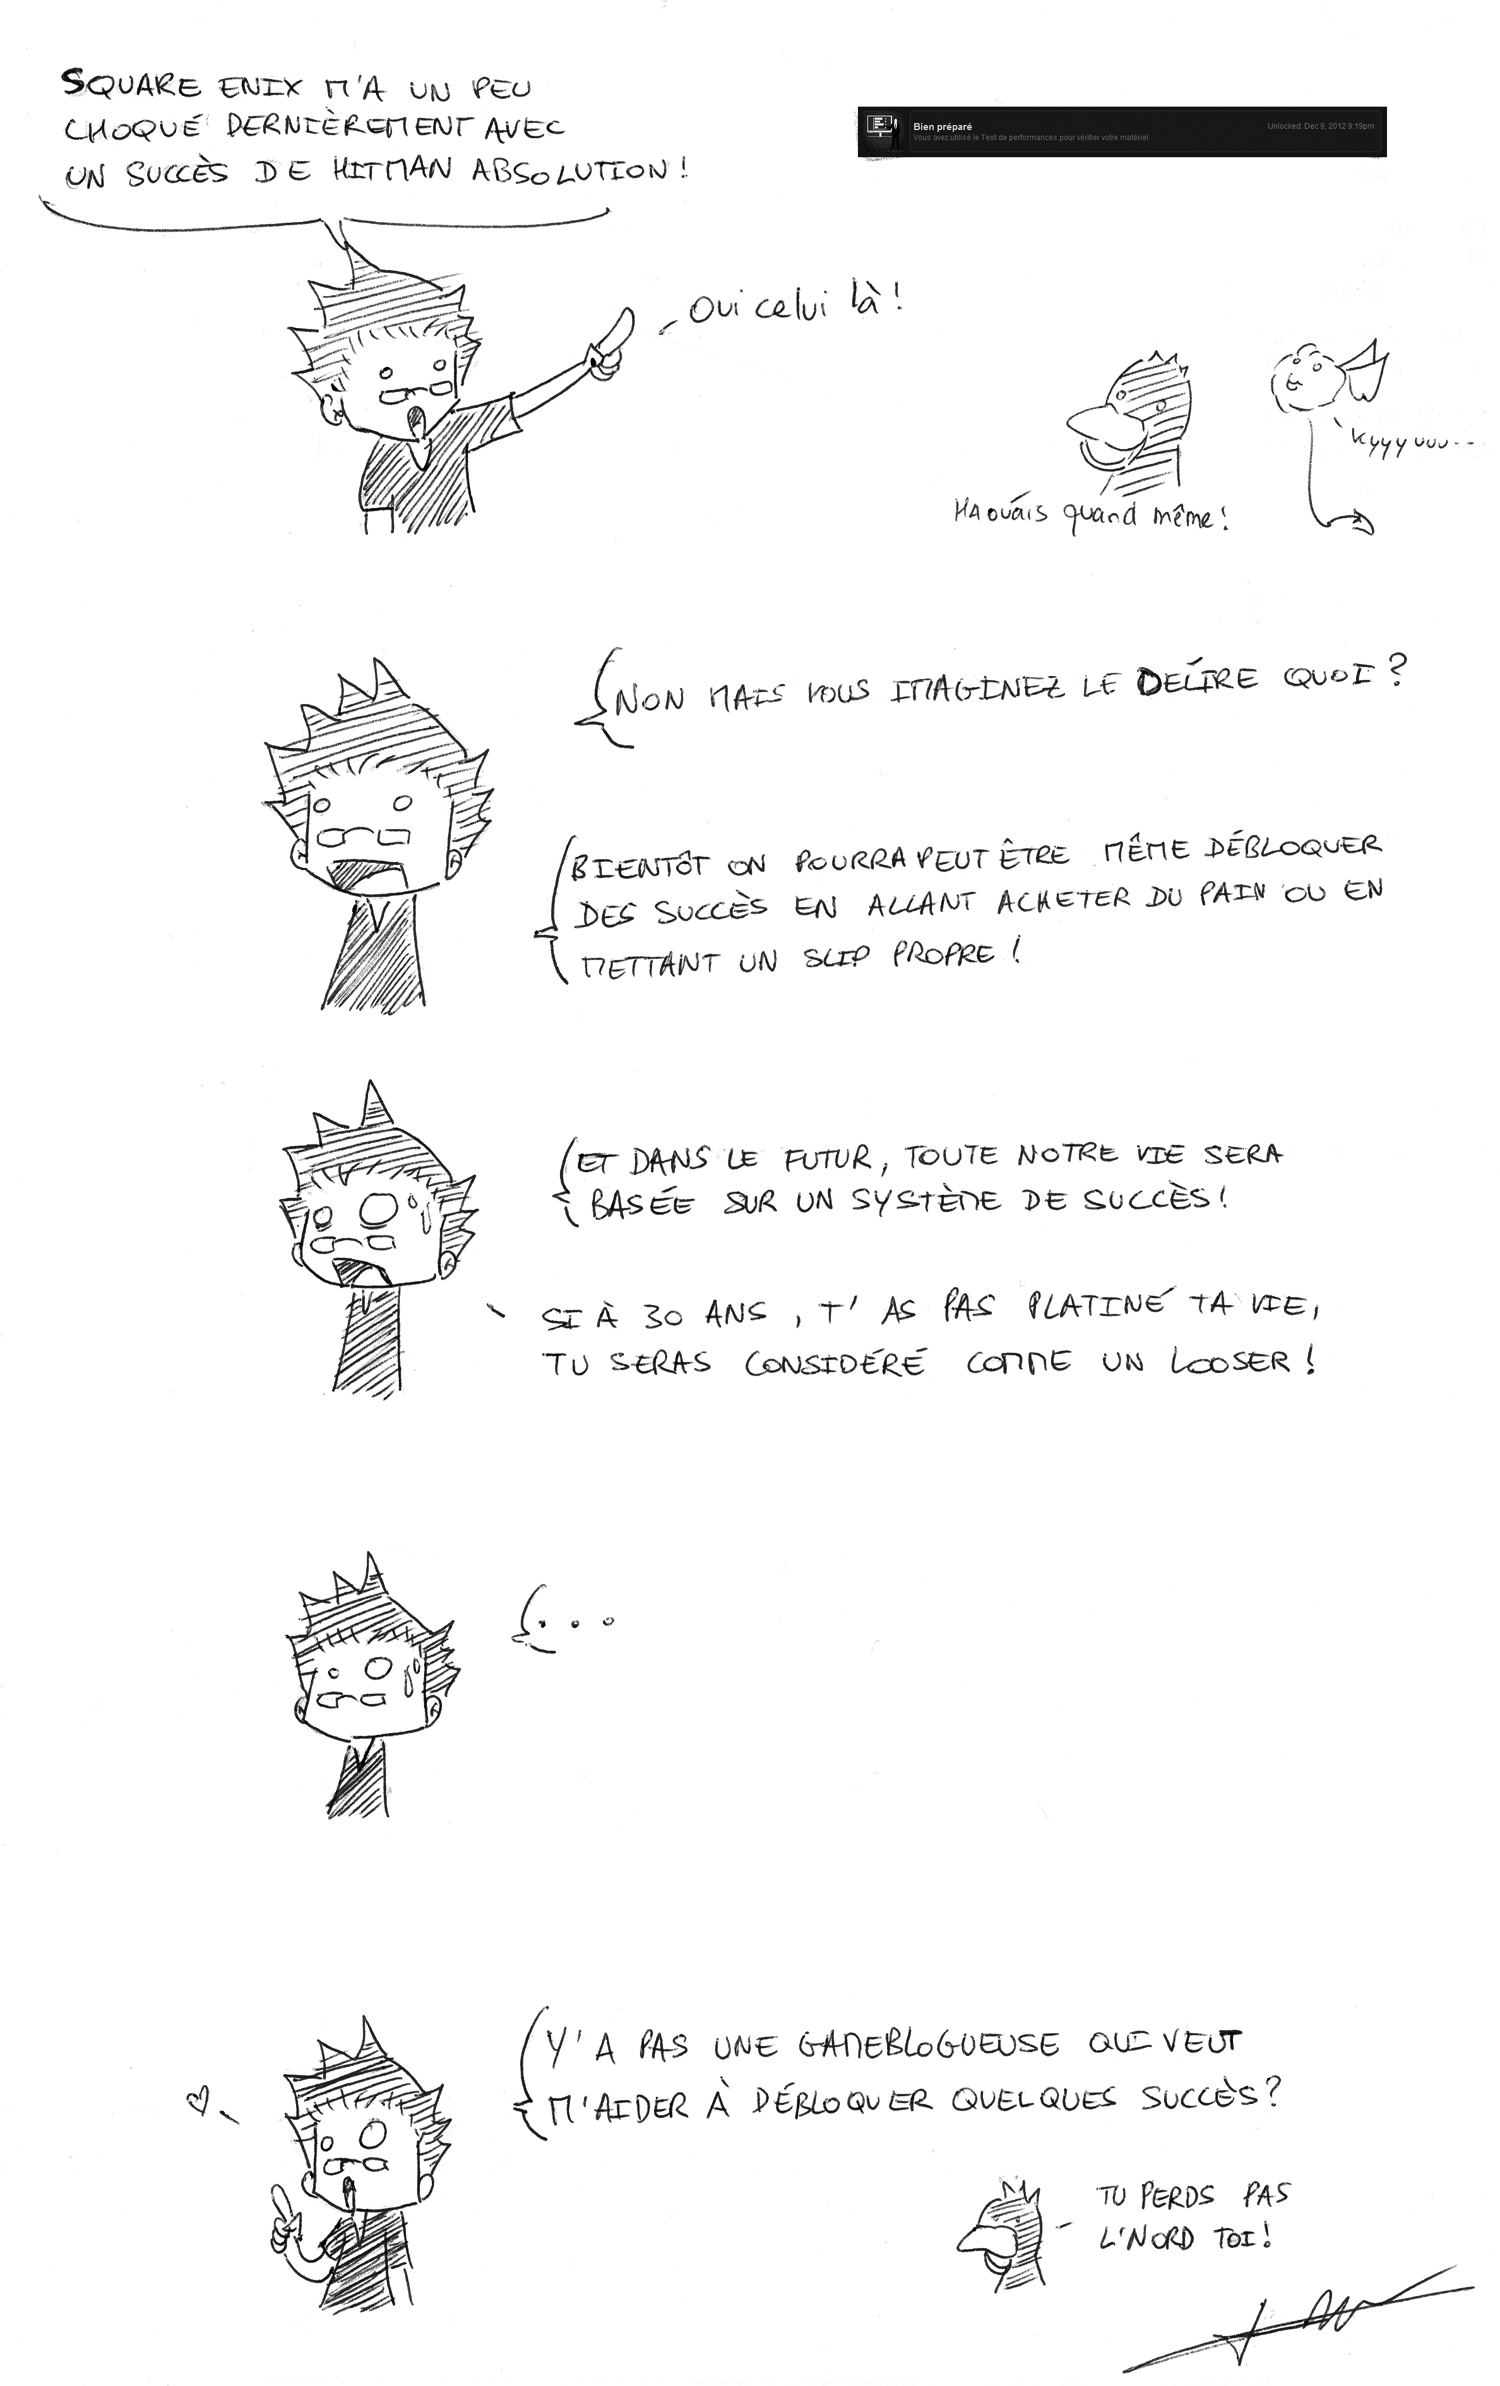 SQUARE ENIX M'A UN PEU
CHOQUÉ DERNIÈREMENT AVEC
UN SUCCÈS DE HITMAN ABSOLUTION!
Bien préparé
Unlocked: Dec 9, 2012 9:19pm
Vous avez utilisé le Test de performances pour vérifier votre matériel.
Oui celui là!
Kyyyuuu...
HA ouais quand même!
NON MAIS VOUS IMAGINEZ LE DÉLIRE QUOI?
BIENTÔT ON POURRA PEUT ÊTRE MÊME DÉBLOQUER
DES SUCCÈS EN ALLANT ACHETER DU PAIN OU EN
METTANT UN SLIP PROPRE!
ET DANS LE FUTUR, TOUTE NOTRE VIE SERA
BASÉE SUR UN SYSTÈME DE SUCCÈS!
SI À 30 ANS, T'AS PAS PLATINÉ TA VIE,
TU SERAS CONSIDÉRÉ COMME UN LOOSER!
...
Y'A PAS UNE GAMEBLOGUEUSE QUI VEUT
M'AIDER À DÉBLOQUER QUELQUES SUCCÈS?
TU PERDS PAS
L'NORD TOI!